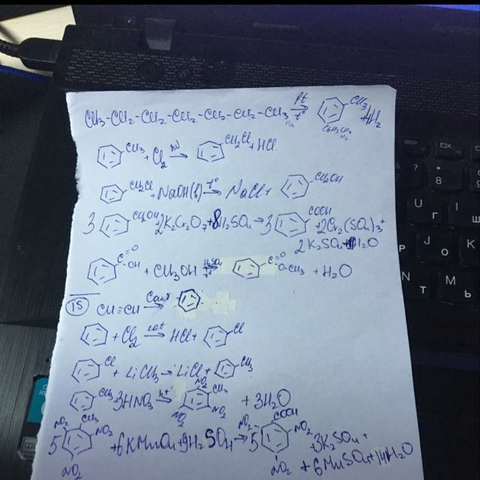 CH3-CH2-CH2-CH2-CH2-CH2-CH3 Pt t° CH3 + 4H2
CH3 + Cl2 hν CH2Cl + HCl
CH2Cl + NaOH(b) t° → NaCl + CH2OH
3 CH2OH 2K2Cr2O7 + 8H2SO4 → 3 COOH + 2Cr2(SO4)3 +
2K2SO4 H2O
C=O -OH + CH3OH H2SO4 C=O O-CH3 + H2O
15 CH≡CH Cакт
+ Cl2 cat → HCl + Cl
Cl + LiCH3 → LiCl + CH3
CH3 3HNO3 NO2 CH3 NO2 NO2 + 3H2O
5 NO2 CH3 NO2 NO2 + 6KMnO4 + 9H2SO4 → 5 COOH NO2 NO2 NO2 3K2SO4 +
+ 6MnSO4 + 14H2O